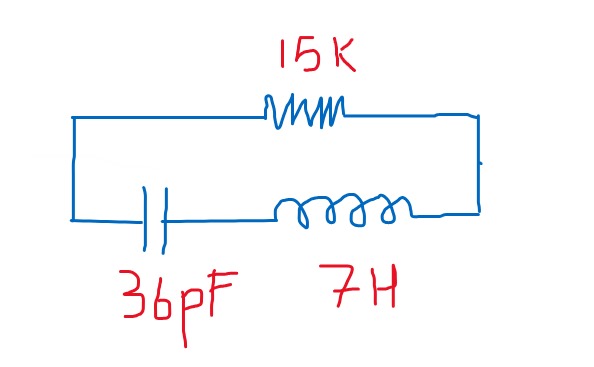 15K
36pF
7H